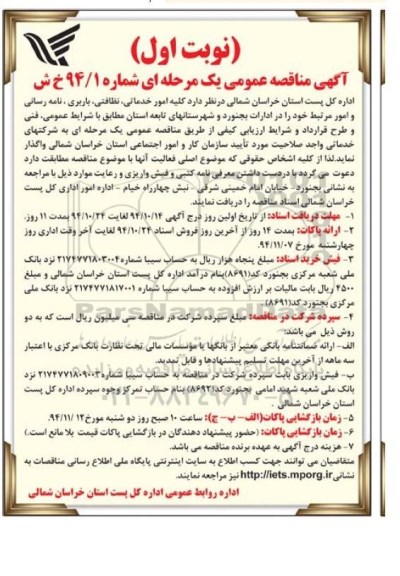 (نوبت اول)
آگهی مناقصه عمومی یک مرحله ای شماره ۹۴/۱ خ ش
اداره کل پست استان خراسان شمالی درنظر دارد کلیه امور خدماتی، نظافتی، باربری ، نامه رسانی
و امور مرتبط خود را در ادارات بجنورد و شهرستانهای تابعه استان مطابق با شرایط عمومی، فنی
و طرح قرارداد و شرایط ارزیابی کیفی از طریق مناقصه عمومی یک مرحله ای به شرکتهای
خدماتی واجد صلاحیت مورد تأیید سازمان کار و امور اجتماعی استان خراسان شمالی واگذار
نماید.لذا از کلیه اشخاص حقوقی که موضوع اصلی فعالیت آنها با موضوع مناقصه مطابقت دارد
دعوت می گردد با دردست داشتن معرفی نامه کتبی و فیش واریزی و رعایت موارد ذیل با مراجعه
به نشانی بجنورد - خیابان امام خمینی شرقی - نبش چهارراه خیام - اداره امور اداری کل پست
خراسان شمالی اسناد مناقصه را دریافت نمایند.
۱- مهلت دریافت اسناد: از تاریخ اولین روز درج آگهی ۹۴/۱۰/۱۴ لغایت ۹۴/۱۰/۲۴ بمدت ۱۱ روز.
۲- ارائه پاکات: بمدت ۱۴ روز از آخرین روز فروش اسناد ۹۴/۱۰/۲۴ لغایت آخر وقت اداری روز
چهارشنبه مورخ ۹۴/۱۱/۰۷.
۳- فیش خرید اسناد: مبلغ پنجاه هزار ریال به حساب سیبا شماره ۲۱۷۴۷۷۱۸۰۳۰۰۴ نزد بانک
ملی شعبه مرکزی بجنورد کد(۸۶۹۱)بنام درآمد اداره کل پست استان خراسان شمالی و مبلغ
۴۵۰۰ ریال بابت مالیات بر ارزش افزوده به حساب سیبا شماره ۲۱۷۴۷۷۱۸۱۷۰۰۱ نزد بانک ملی
مرکزی بجنورد کد(۸۶۹۱)
۴- سپرده شرکت در مناقصه: مبلغ سپرده شرکت در مناقصه سی میلیون ریال است که به دو
روش ذیل می باشد:
الف- ارائه ضمانتنامه بانکی معتبر از بانکها یا مؤسسات مالی تحت نظارت بانک مرکزی با اعتبار
سه ماهه از آخرین مهلت تسلیم پیشنهادها و قابل تمدید.
ب- فیش واریزی بابت سپرده شرکت در مناقصه به حساب سیبا شماره ۲۱۷۴۷۷۱۸۰۹۰۰۳ نزد
بانک ملی شعبه شهید امامی بجنورد کد(۸۶۹۲) بنام حساب تمرکز وجوه سپرده اداره کل پست
استان خراسان شمالی
۵- زمان بازگشایی پاکات(الف- ب- ج): ساعت ۱۰ صبح روز دو شنبه مورخ ۹۴/۱۱/۱۲
۶- زمان بازگشایی پاکات: (حضور پیشنهاد دهندگان در بازگشایی پاکات قیمت بلا مانع است.)
۷- هزینه درج آگهی به عهده برنده مناقصه می باشد.
متقاضیان می توانند جهت کسب اطلاع به سایت اینترنتی پایگاه ملی اطلاع رسانی مناقصات به
نشانی http://iets.mporg.ir نیز مراجعه نمایند.
اداره روابط عمومی اداره کل پست استان خراسان شمالی